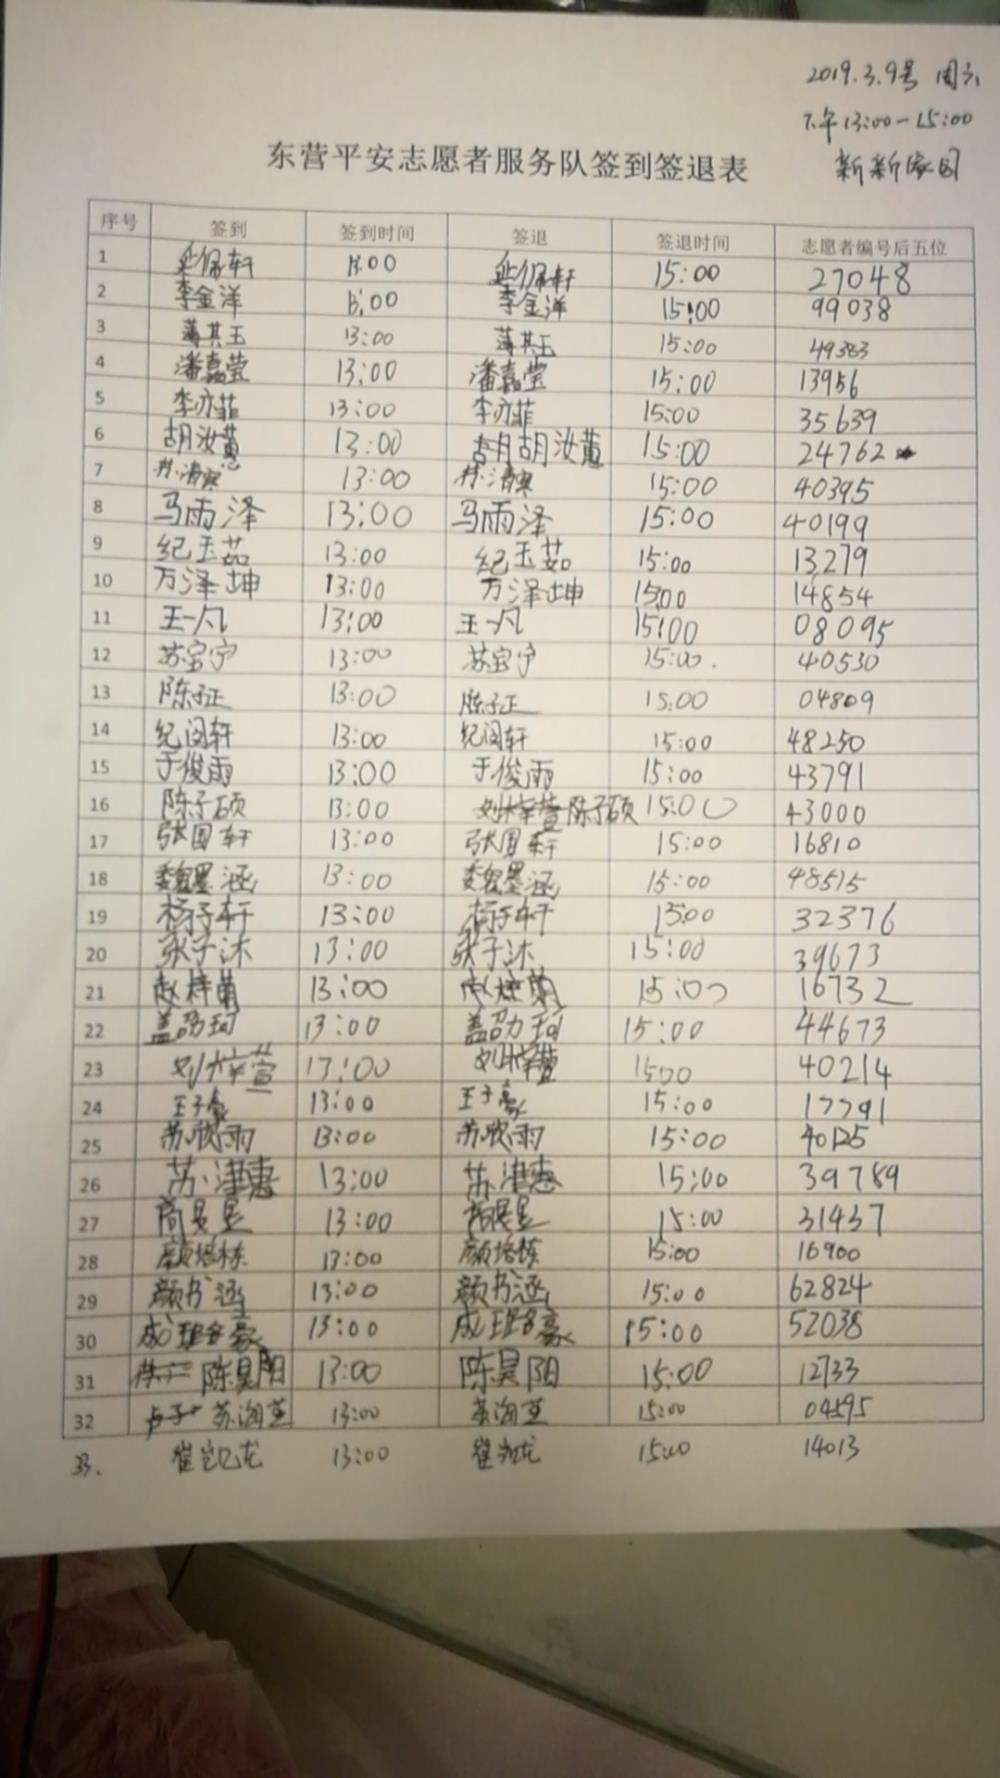 2019.3.9号 周六
下午13:00-15:00
新新家园
东营平安志愿者服务队签到签退表
序号 签到 签到时间 签退 签退时间 志愿者编号后五位
1 延佩轩 13:00 延佩轩 15:00 27048
2 李金洋 13:00 李金洋 15:00 99038
3 薄其玉 13:00 薄其玉 15:00 49383
4 潘嘉莹 13:00 潘嘉莹 15:00 13956
5 李亦菲 13:00 李亦菲 15:00 35639
6 胡汝蕙 13:00 胡汝蕙 15:00 24762
7 13:00 15:00 40395
8 马雨泽 13:00 马雨泽 15:00 40199
9 纪玉茹 13:00 纪玉茹 15:00 13279
10 万泽坤 13:00 万泽坤 15:00 14854
11 王一凡 13:00 王一凡 15:00 08095
12 苏宝宁 13:00 苏宝宁 15:00. 40530
13 陈子正 13:00 陈子正 15:00 04809
14 纪闵轩 13:00 纪闵轩 15:00 48250
15 于俊雨 13:00 于俊雨 15:00 43791
16 陈子硕 13:00 陈子硕 15:00 43000
17 张国轩 13:00 张国轩 15:00 16810
18 魏墨涵 13:00 魏墨涵 15:00 48515
19 杨子轩 13:00 杨子轩 15:00 32376
20 张子沐 13:00 张子沐 15:00 39673
21 13:00 15:00 16732
22 盖劭珂 13:00 盖劭珂 15:00 44673
23 刘梓萱 13:00 刘梓萱 15:00 40214
24 王子豪 13:00 王子豪 15:00 17791
25 苏欣雨 13:00 苏欣雨 15:00 40125
26 苏津惠 13:00 苏津惠 15:00 39789
27 商昊昱 13:00 商昊昱 15:00 31437
28 颜培栋 13:00 颜培栋 15:00 16900
29 颜书涵 13:00 颜书涵 15:00 62824
30 13:00 15:00 52038
31 陈昊阳 13:00 陈昊阳 15:00 12733
32 13:00 15:00 04595
33. 崔凯龙 13:00 崔凯龙 15:00 14013